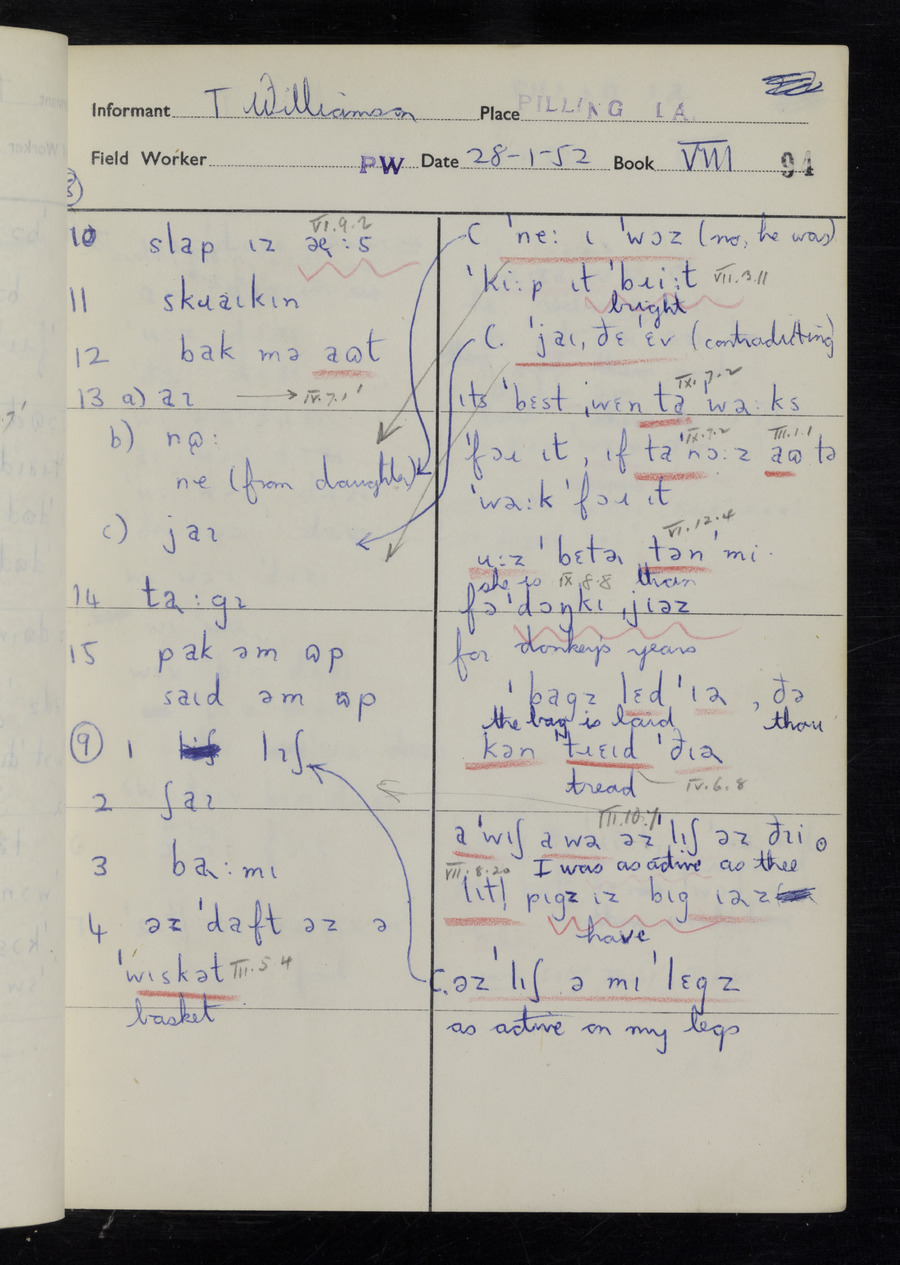 Informant T Williamson Place PILLING LA.
Field Worker PW Date 28-1-52 Book VIII 94
8)
10 slap ɪz
VI.9.2
11 skɹaɪkɪn
12 bak mə aɷt
13 a) aɪ → IV.7.1
b) nɷ:
ne (from daughter)
c) jaɪ
14 ta:gɪ
15 pak əm ɷp
saɪd əm ɷp
9 1 lɪʃ
2 ʃaɪ
3 ba:mɪ
4 əz ˈdaft əz ə
ˈwɪskət III.5.4
basket
C ˈne: ɪ ˈwɔz (no, he was)
ˈki:p ɪt ˈbɹi:t VII.3.11
bright
C. ˈjaɪ, ðɛ ˈɛv (contradicting)
IX.7.2
ɪts ˈbɛst ˌwɛn ta ˈwa:ks
IX.7.2 III.1.1
ˈfɔɹ ɪt, ɪf ta ˈnɔ:z aɷ tə
ˈwa:k ˈfɔɹ ɪt
VI.12.4
u:z ˈbɛtə tən ˈmi.
she is IX.8.8 than
fə ˈdɔŋkɪ ˌjɪəz
for donkeys years
ˈbagz lɛd ˈɪə, ðə
the bag is laid thou
kən ˈtɹɛɪd ˈðɪə
tread IV.6.8
VIII.10.7
a ˈwɪʃ a wa əz ˈlɪʃ əz ðɪi
VII.8.20 I was as active as thee
lɪtl pɪgz ɪz bɪg ɪəz
have
C. əz ˈlɪʃ ə mɪ ˈlɛgz
as active on my legs